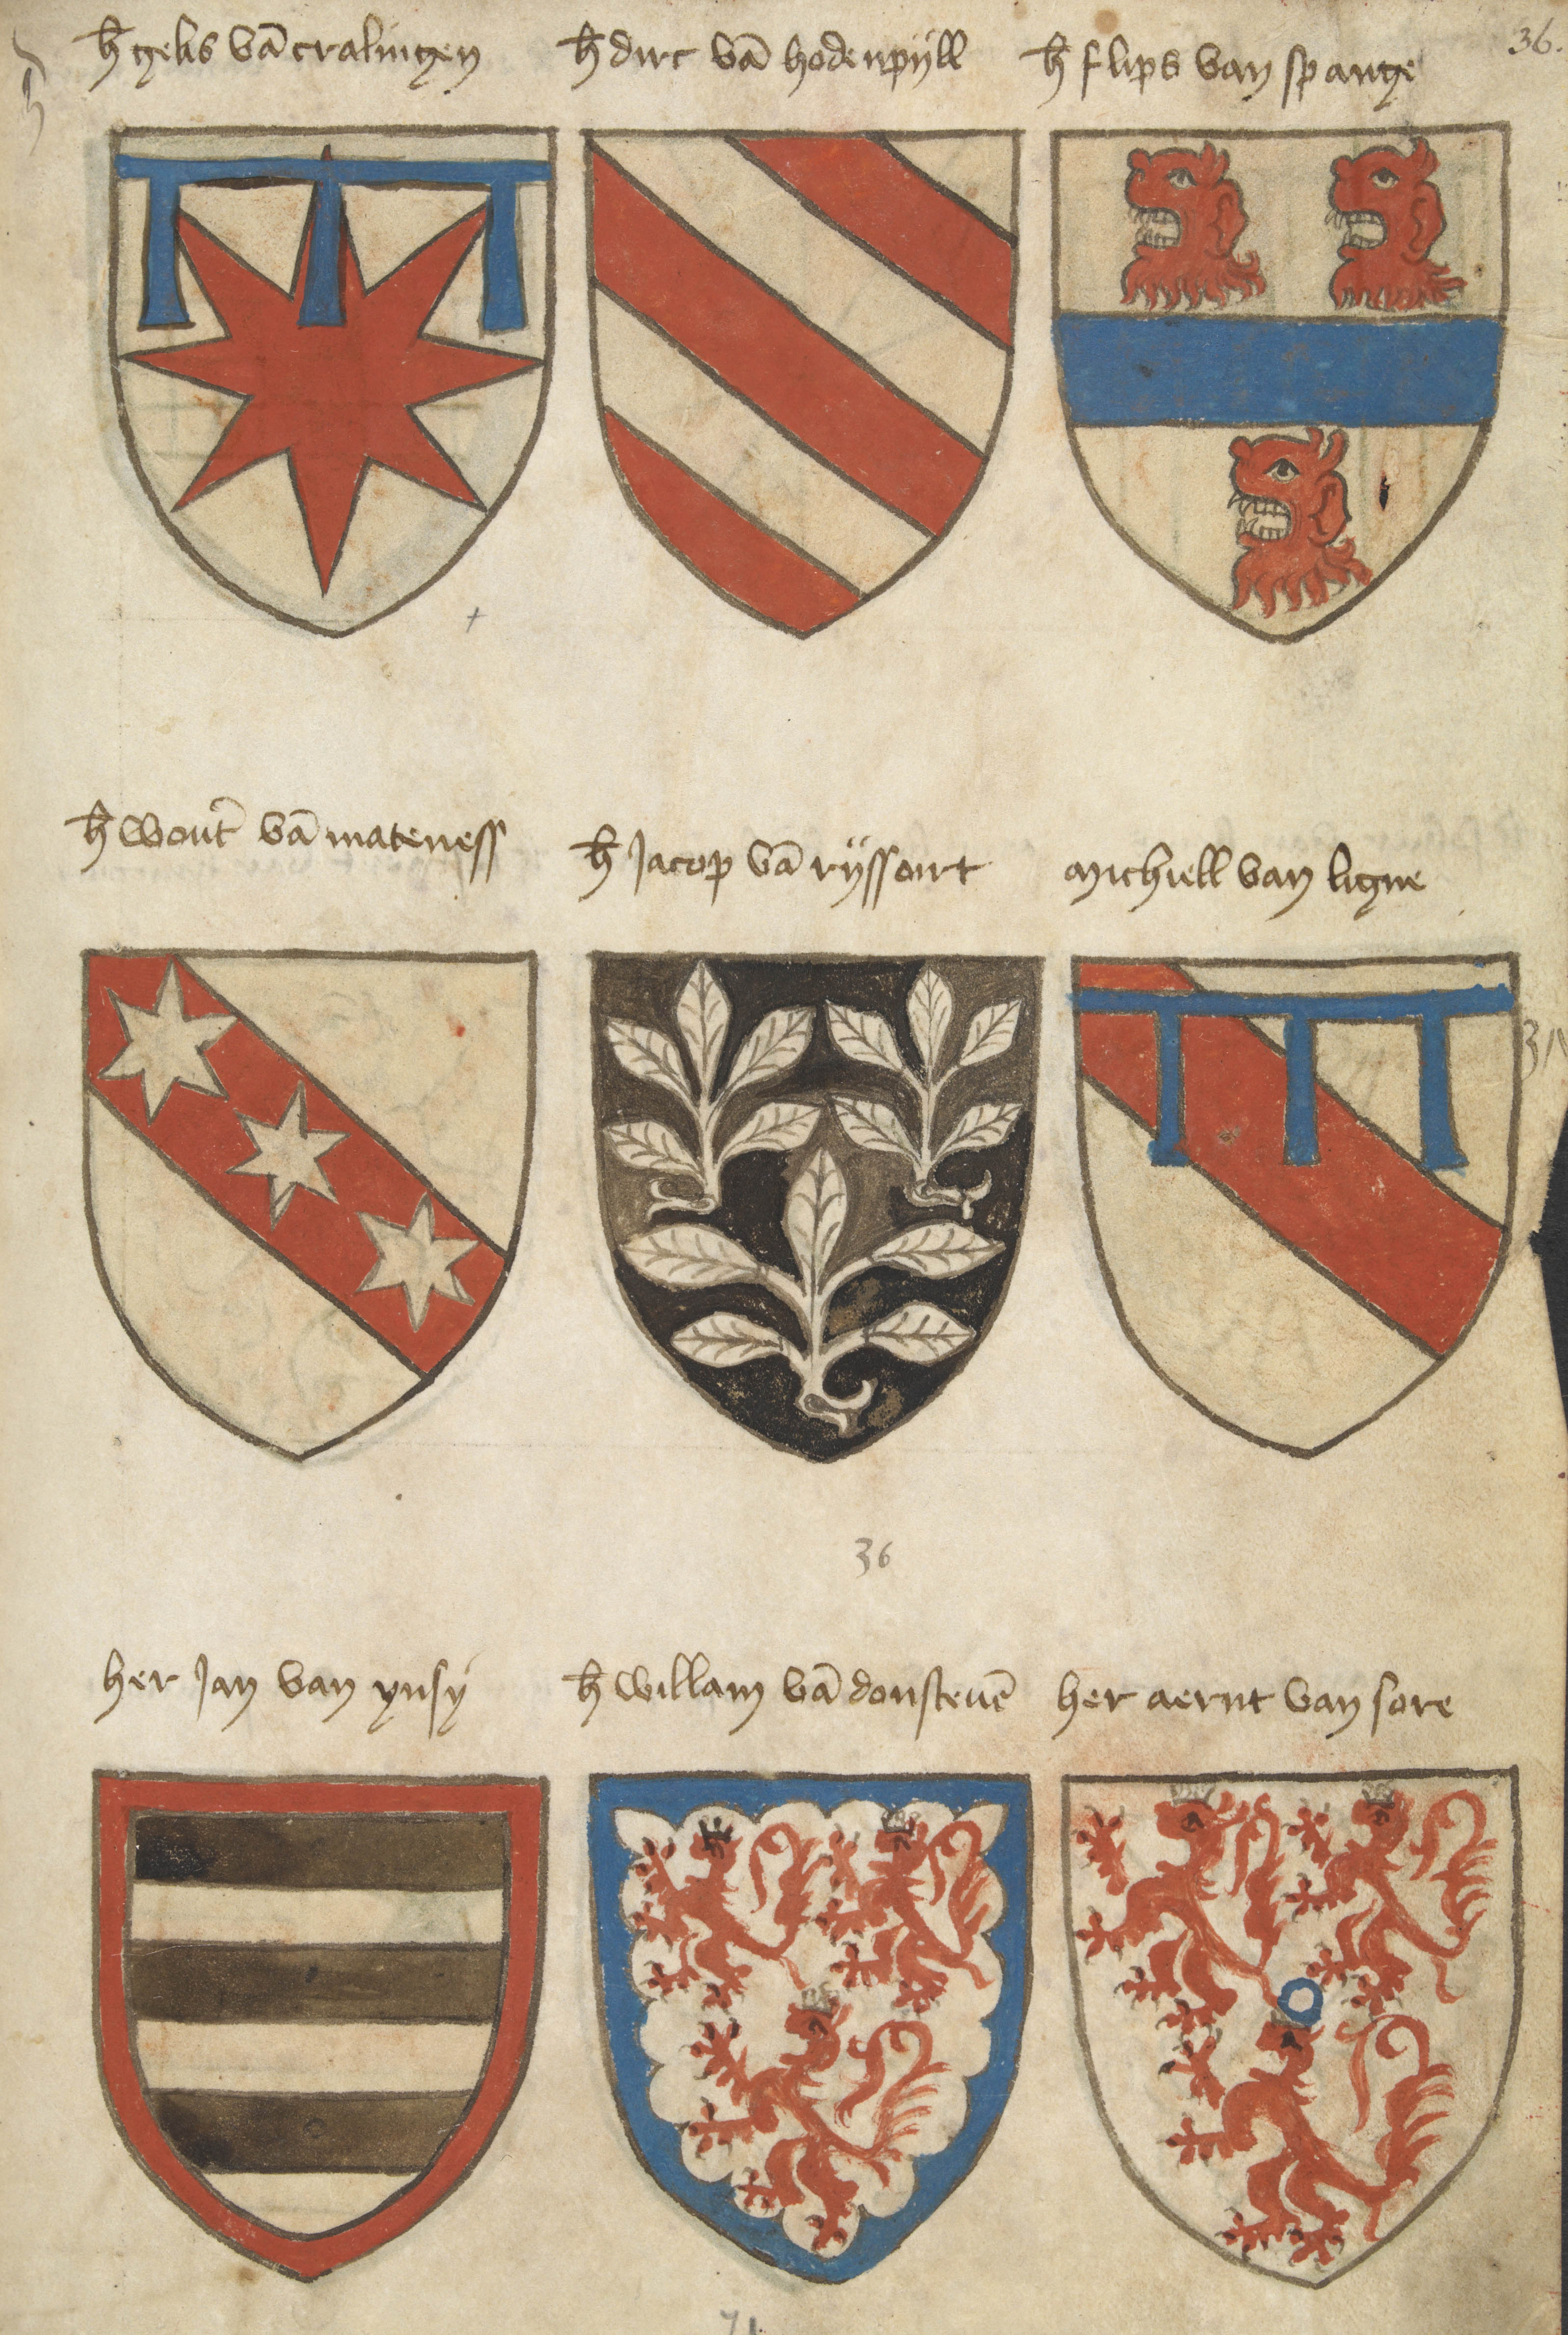 36.
h̄ gelis vā cralingen
h̄ dirc vā hodenpijll
h̄ flips van spange
h̄ wout̄ vā mateness
h̄ Jacop vā rijssoirt
michiell van ligne
36
her Jan van ynsy
h̄ willam vā donstevē
her aernt van sore
71